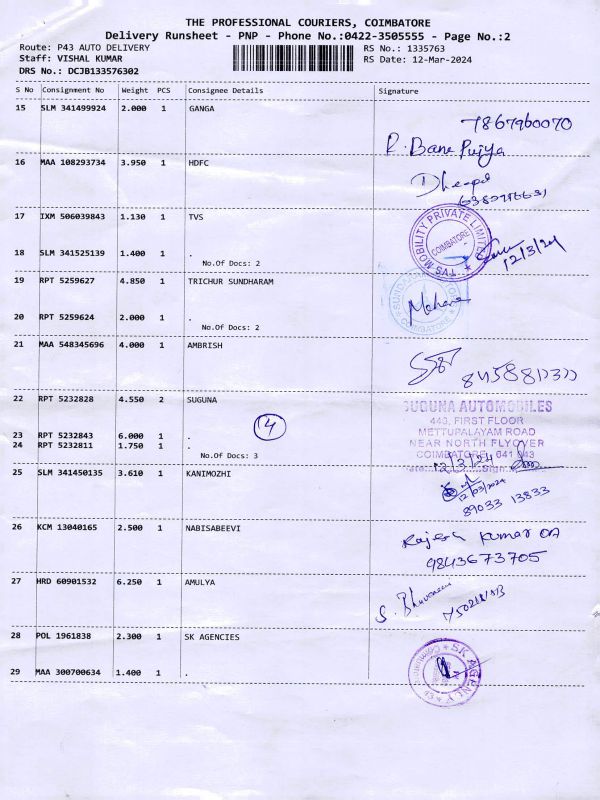 THE PROFESSIONAL COURIERS, COIMBATORE
Delivery Runsheet - PNP - Phone No.:0422-3505555 - Page No.:2
Route: P43 AUTO DELIVERY RS No.: 1335763
Staff: VISHAL KUMAR RS Date: 12-Mar-2024
DRS No.: DCJB133576302
S No Consignment No Weight PCS Consignee Details Signature
15 SLM 341499924 2.000 1 GANGA
7867960070
P. Bane Pujya
16 MAA 108293734 3.950 1 HDFC
17 IXM 506039843 1.130 1 TVS
TVS MOBILITY PRIVATE LIMITED
COIMBATORE
12/3/24
18 SLM 341525139 1.400 1 .
No.Of Docs: 2
19 RPT 5259627 4.850 1 TRICHUR SUNDHARAM
COIMBATORE
20 RPT 5259624 2.000 1 .
No.Of Docs: 2
21 MAA 548345696 4.000 1 AMBRISH
22 RPT 5232828 4.550 2 SUGUNA
4
SUGUNA AUTOMOBILES
443, FIRST FLOOR
METTUPALAYAM ROAD
NEAR NORTH FLYOVER
COIMBATORE 641 043
12/3/24
23 RPT 5232843 6.000 1 .
24 RPT 5232811 1.750 1 .
No.Of Docs: 3
25 SLM 341450135 3.610 1 KANIMOZHI
12/03/2024
89033 13833
26 KCM 13040165 2.500 1 NABISABEEVI
Rajesh Kumar
9843673705
27 HRD 60901532 6.250 1 AMULYA
28 POL 1961838 2.300 1 SK AGENCIES
SK AGENCY
29 MAA 300700634 1.400 1 .